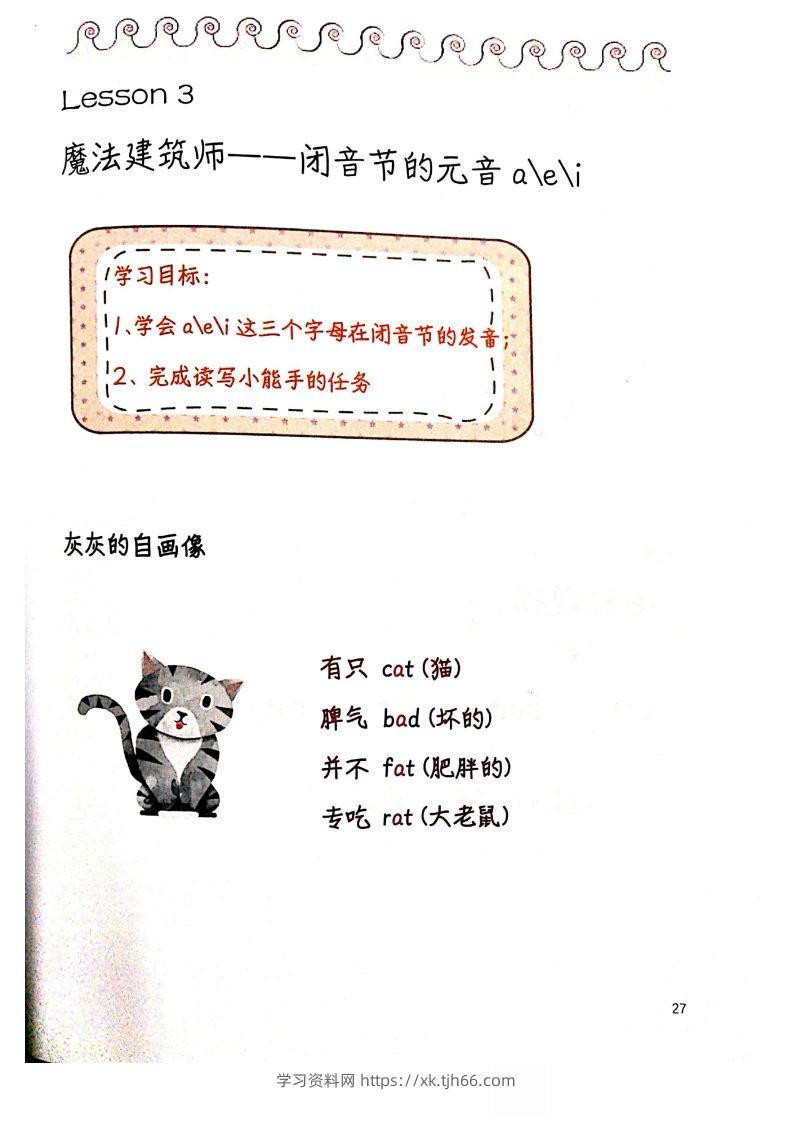 Lesson 3
魔法建筑师——闭音节的元音 a\e\i
学习目标：
1、学会 a\e\i 这三个字母在闭音节的发音；
2、完成读写小能手的任务
灰灰的自画像
有只 cat (猫)
脾气 bad (坏的)
并不 fat (肥胖的)
专吃 rat (大老鼠)
27
学习资料网 https://xk.tjh66.com